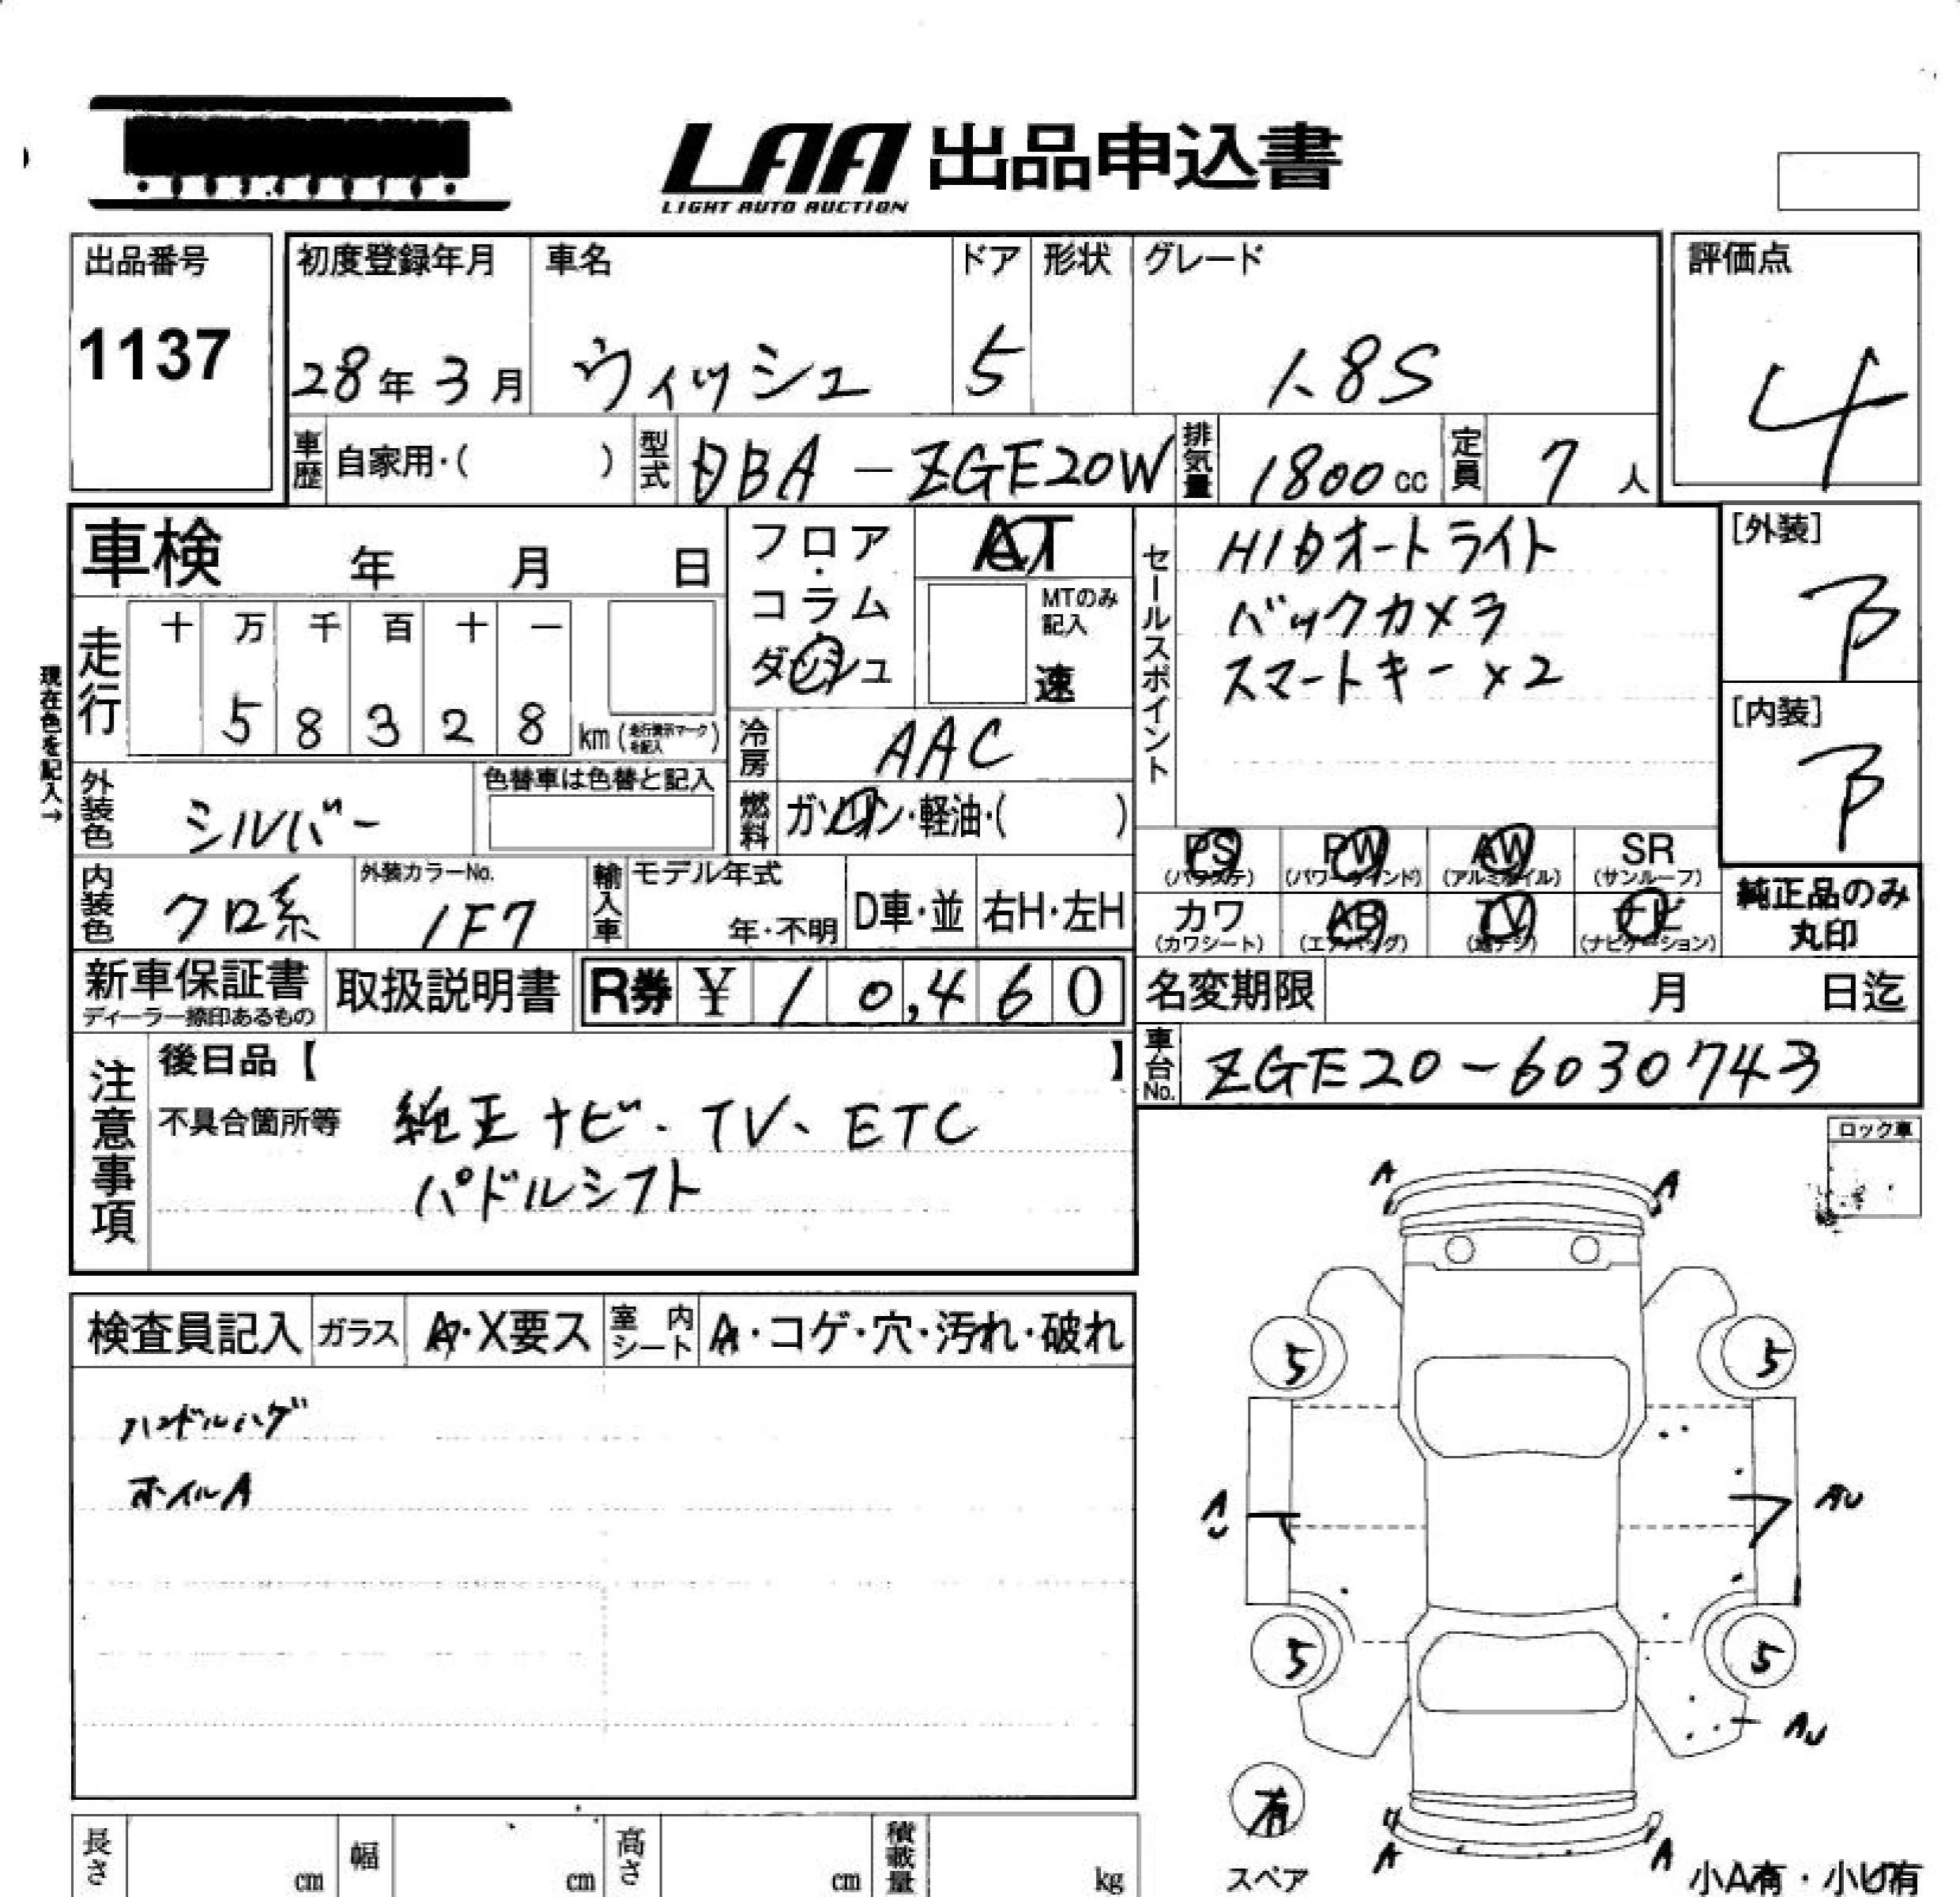 LAA 出品申込書
LIGHT AUTO AUCTION
出品番号
1137
初度登録年月
28年 3月
車名
ウィッシュ
ドア
5
形状
グレード
1.8S
評価点
4
車歴 自家用・( )
型式 DBA - ZGE20W
排気量 1800 cc
定員 7 人
車検 年 月 日
フロア・コラム・ダッシュ
AT
MTのみ記入
速
セールスポイント
HIDオートライト
バックカメラ
スマートキー×2
[外装]
B
[内装]
B
現在色を記入→
走行
十 万 千 百 十 一
5 8 3 2 8 km (走行表示マークを記入)
冷房 AAC
外装色 シルバー
色替車は色替と記入
燃料 ガソリン・軽油・( )
PS (パワステ)
PW (パワーウインド)
AW (アルミホイル)
SR (サンルーフ)
カワ (カワシート)
AB (エアバッグ)
TV (地デジ)
ナビ (ナビゲーション)
純正品のみ
丸印
内装色 クロ系
外装カラーNo. 1F7
輸入車 モデル年式
年・不明
D車・並
右H・左H
新車保証書
ディーラー捺印あるもの
取扱説明書
R券 ¥ 10,460
名変期限 月 日迄
車台No. ZGE20-6030743
注意事項
後日品【 】
不具合箇所等
純正ナビ、TV、ETC
パドルシフト
ロック車
検査員記入
ガラス A・X要ス
室内シート A・コゲ・穴・汚れ・破れ
ハンドルハゲ
ホイルA
A A
5 5
AU AU
5 5
AU
有
スペア
A A
小A有・小U有
長さ cm
幅 cm
高さ cm
積載量 kg